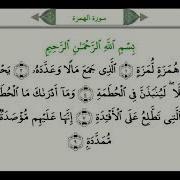 سورة الهمزة
بِسْمِ اللَّهِ الرَّحْمَٰنِ الرَّحِيمِ
هُمَزَةٍ لُمَزَةٍ ﴿١﴾ الَّذِي جَمَعَ مَالًا وَعَدَّدَهُ ﴿٢﴾ يَحْ
لَّا ۖ لَيُنْبَذَنَّ فِي الْحُطَمَةِ ﴿٤﴾ وَمَا أَدْرَاكَ مَا الْحُطَ
الَّتِي تَطَّلِعُ عَلَى الْأَفْئِدَةِ ﴿٧﴾ إِنَّهَا عَلَيْهِمْ مُؤْصَدَةٌ
مُمَدَّدَةٍ ﴿٩﴾